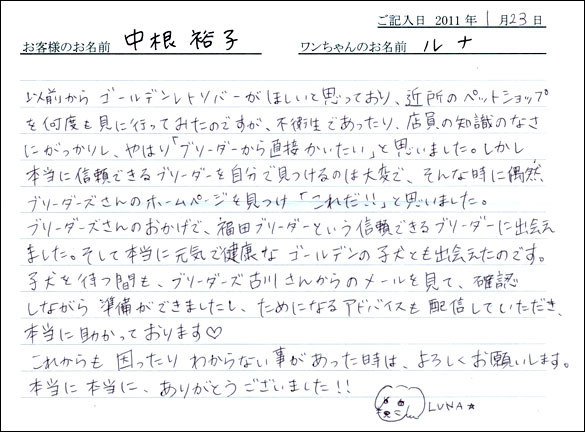 ご記入日 2011年 1月23日
お客様のお名前 中根 裕子 ワンちゃんのお名前 ルナ
以前からゴールデンレトリバーがほしいと思っており、近所のペットショップ
を何度も見に行ってみたのですが、不衛生であったり、店員の知識のなさ
にがっかりし、やはり「ブリーダーから直接かいたい」と思いました。しかし
本当に信頼できるブリーダーを自分で見つけるのは大変で、そんな時に偶然、
ブリーダーズさんのホームページを見つけ「これだ!!」と思いました。
ブリーダーズさんのおかげで、福田ブリーダーという信頼できるブリーダーに出会え
ました。そして本当に元気で健康なゴールデンの子犬とも出会えたのです。
子犬を待つ間も、ブリーダーズ古川さんからのメールを見て、確認
しながら準備ができましたし、ためになるアドバイスも配信していただき、
本当に助かっております♡
これからも困ったりわからない事があった時は、よろしくお願いします。
本当に本当に、ありがとうございました!!
LUNA★